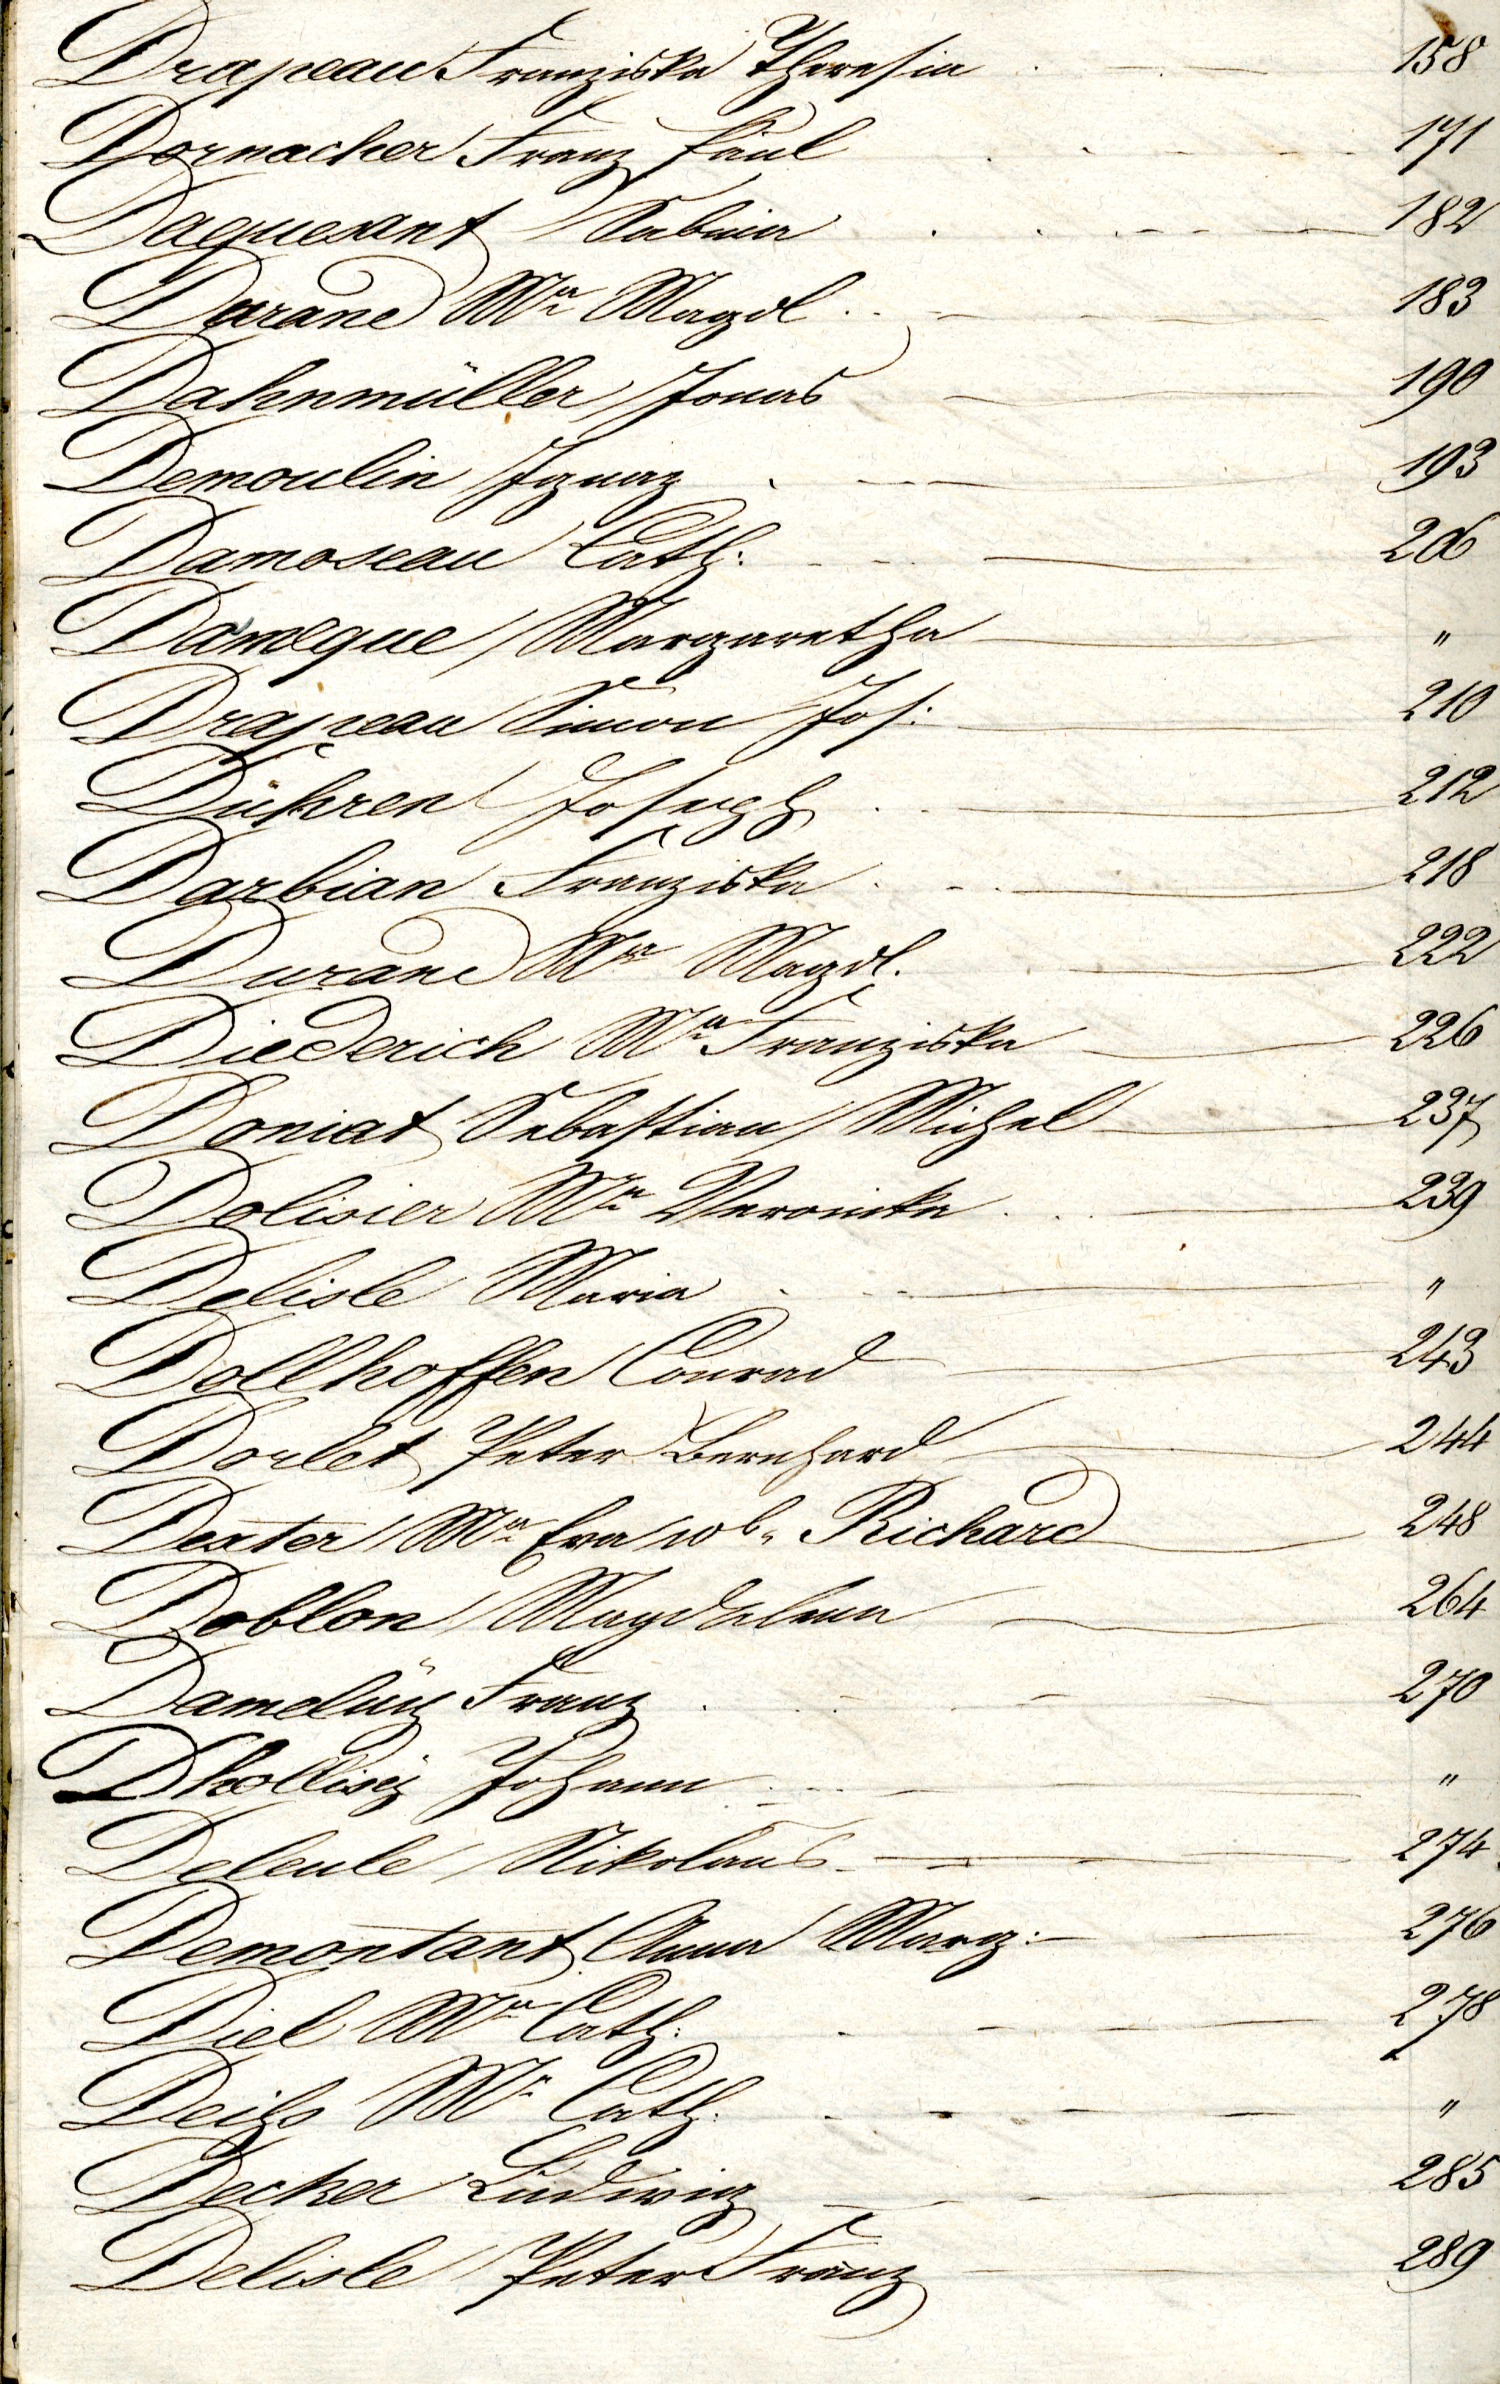 Drapeau Franziska Theresia 158
Dornacher Franz Paul 171
Daquerant Sabina 182
Durand Ma Magdl. 183
Dahnmüller Jonas 190
Demoulin Ignaz 193
Damoseau Cath: 206
Margaretha "
Drapeau Simon Jos: 210
Dühren Joseph 212
Darbian Franziska 218
Durand Ma Magdl. 222
Diederich Ma Franziska 226
Doniat Sebastian Michel 237
Dolisier Ma Veronika 239
Delisle Maria "
Dollhoffen Conrad 243
Dorlet Peter Bernhard 244
Dexter Ma Eva wb. Richard 248
Doblon Magdalena 264
Franz 270
Johann "
Deleule Nikolaus 274
Demontant Anna Marg: 276
Diel Ma Cath: 278
Ma Cath: "
Decker Ludwig 285
Delisle Peter Franz 289